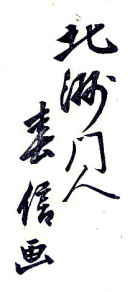 北洲門人
春信画